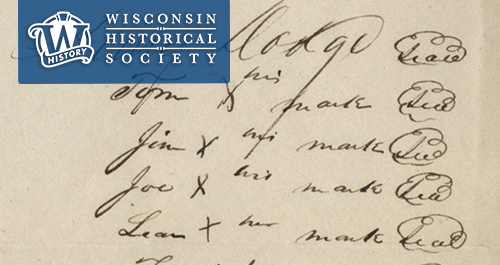 WISCONSIN
HISTORICAL
SOCIETY
W
HISTORY
Dodge Seal
Tom X his mark Seal
Jim X his mark Seal
Joe X his mark Seal
Lear X her mark Seal